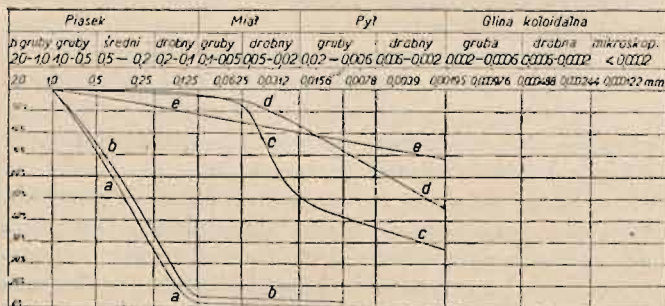 Piasek Miał Pył Glina koloidalna
b. gruby gruby średni drobny gruby drobny gruby drobny gruba drobna mikroskop.
2,0-1,0 1,0-0,5 0,5-0,2 0,2-0,1 0,1-0,05 0,05-0,02 0,02-0,006 0,006-0,002 0,002-0,0006 0,0006-0,0002 <0,0002
2,0 1,0 0,5 0,25 0,125 0,0625 0,0312 0,0156 0,0078 0,0039 0,00195 0,000976 0,000488 0,000244 0,000122 mm
e d
b c e
a d
c
a b